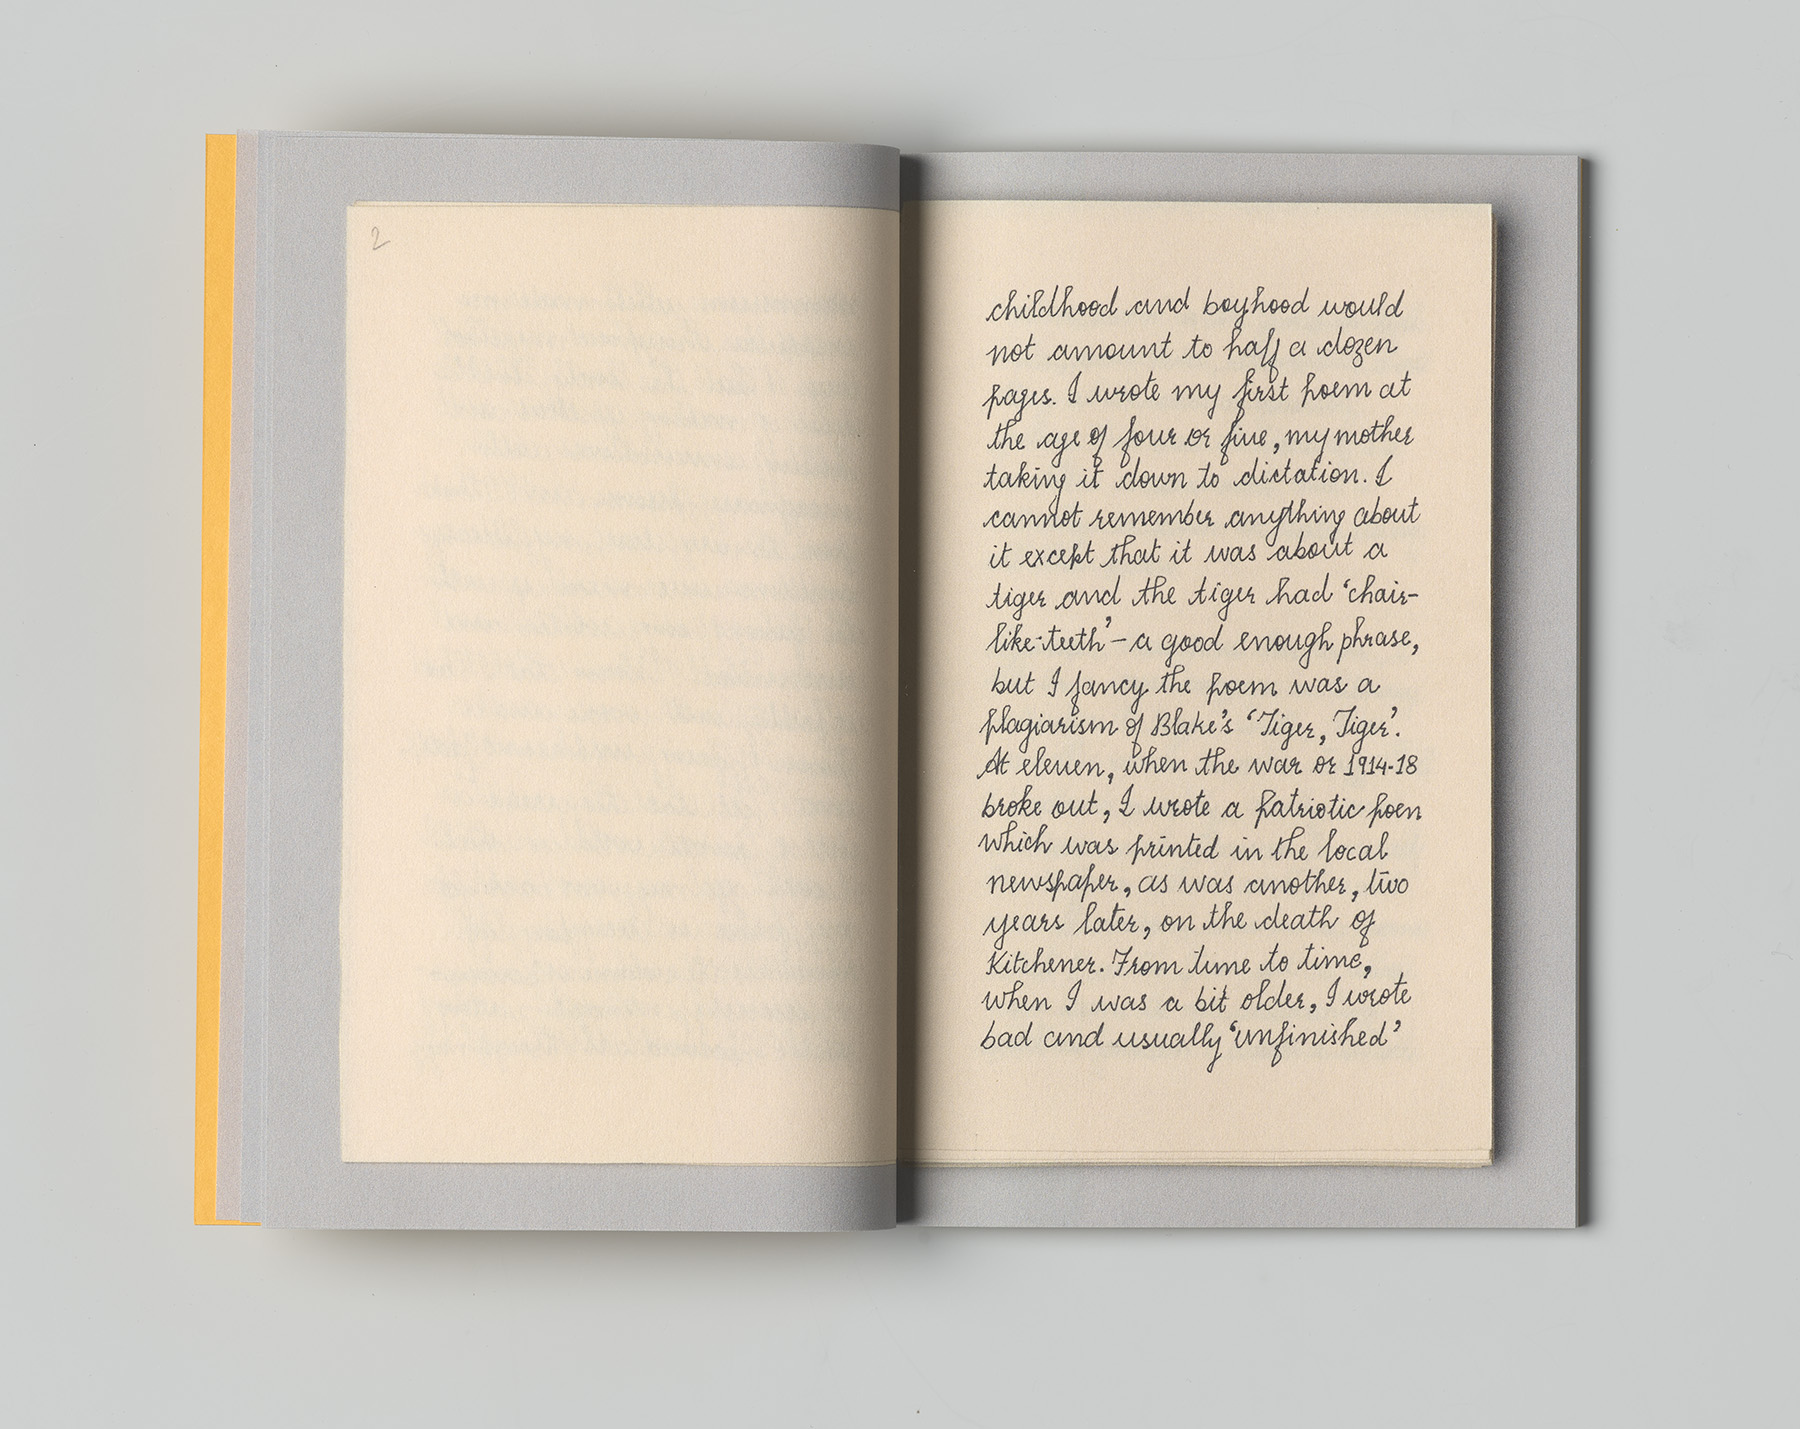 2
childhood and boyhood would
not amount to half a dozen
pages. I wrote my first poem at
the age of four or five, my mother
taking it down to dictation. I
cannot remember anything about
it except that it was about a
tiger and the tiger had ‘chair-
like-teeth’ – a good enough phrase,
but I fancy the poem was a
plagiarism of Blake’s ‘Tiger, Tiger’.
At eleven, when the war or 1914-18
broke out, I wrote a patriotic poen
which was printed in the local
newspaper, as was another, two
years later, on the death of
Kitchener. From time to time,
when I was a bit older, I wrote
bad and usually ‘unfinished’